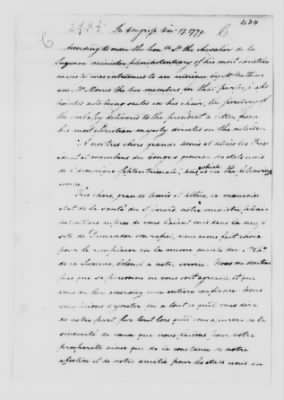 434
In Congress Nov. 17. 1779
According to order the honble. the Chevalier de la
Luzerne minister plenipotentiary of his most christian
majesty was introduced to an audience by Mr Mathews
and Mr Morris the two members in that
being seated in his chair, the
delivered to the president a letter from
his most christian majesty directed on the outside.
A nos tres chers grands amis et alliés les Presi-
dent et membres du Congres general des etats unis
de l'amerique Septentrionale, which is in the following
words
Tres chers grands amis et alliés, Le mauvais
etat de la santé du Sr Gerard notre ministre pleni-
potentiaire aupres de vous l'ayant mis dans la neces-
sité de demander son rappel, nous avons fait choix
pour le remplacer en la meme qualité du Sr Chr.
de la Luzerne, colonel a notre service. Nous ne doutons
pas que sa personne ne vous soit agreable et que
vous ne lui accordiez une entiere confiance. Nous
vous prions d'ajouter foi a tout ce qu'il vous dira
de notre part sur tout lors qu'il vous assurera de la
sincerité des vœux que nous faisons pour votre
prosperité ainsi que de la constance de notre
affection et de notre amitié pour les etats unis en